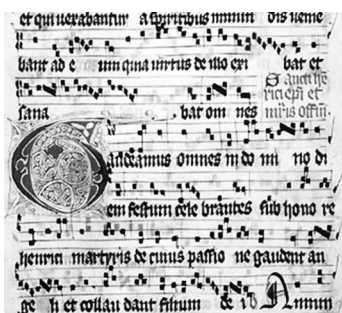 et qui vexabantur a spiritibus inmun dis vene
bant ad e um quia virtus de illo exi bat et
sana bat om nes
Sancti he
rici epi et
mris offm.
Gaudeamus omnes in do mi no di
em festum cele brantes sub hono re
henrici martyris de cuius passio ne gaudent an
ge li et collau dant filium de i
Annum